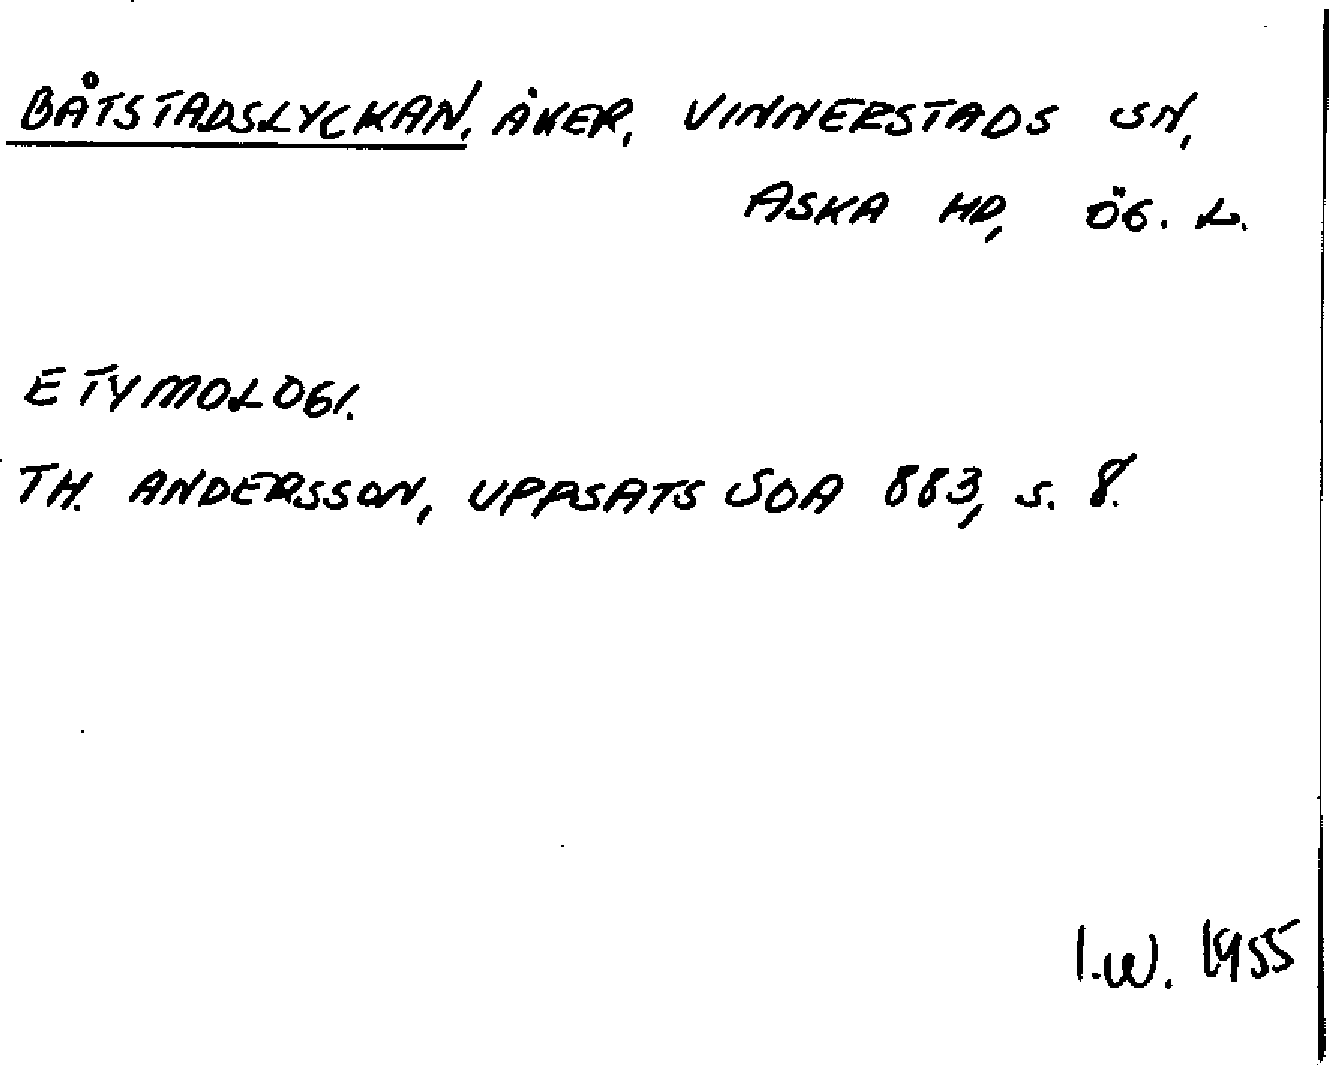 BÅTSTADSLYCKAN, ÅKER, VINNERSTADS SN,
ASKA HD, ÖG. L.
ETYMOLOGI.
TH. ANDERSSON, UPPSATS SOA 883, S. 8.
I.W. 1955